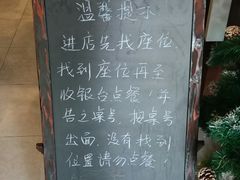 温馨提示
进店先找座位,
找到座位再至
收银台点餐！并
告之桌号，按桌号
出面,没有找到
位置请勿点餐！